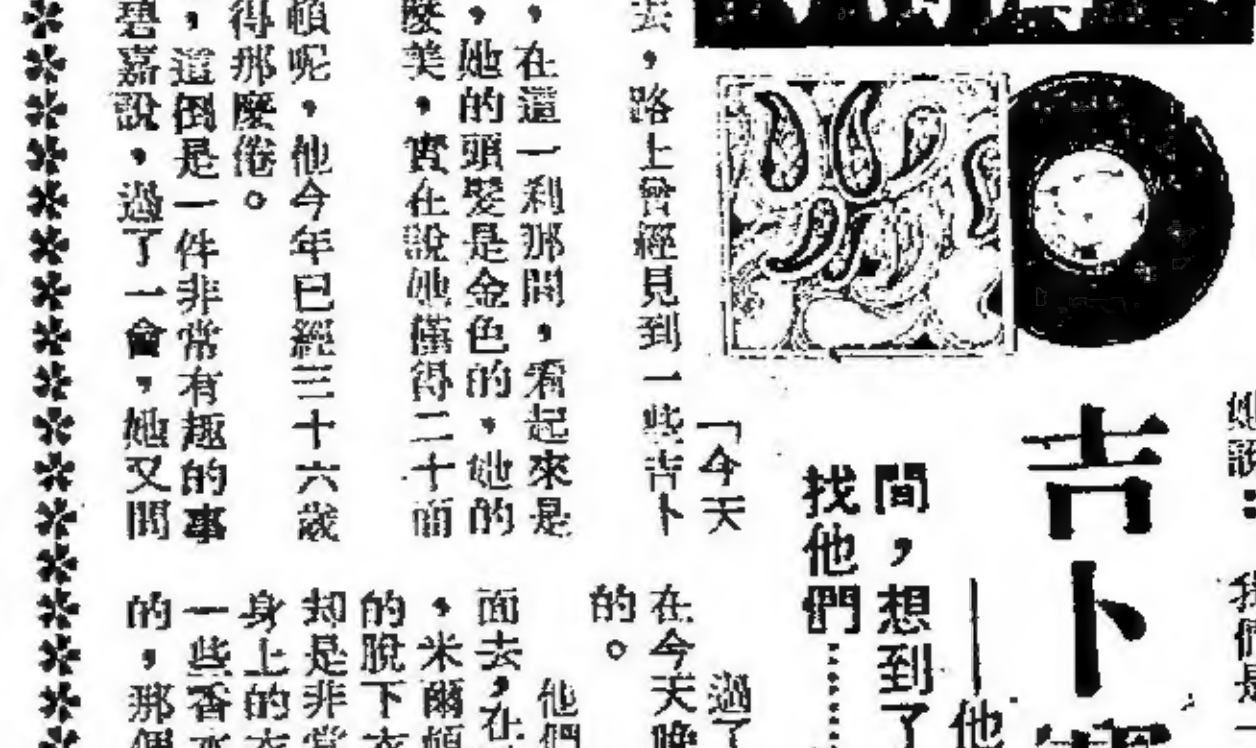 她說：我們是一
吉卜
——他
間，想到了
找他們……
「今天
去，路上曾經見到一些吉卜
，在這一剎那間，看起來是
，她的頭髮是金色的，她的
麼美，實在說她僅得二十面
頓呢，他今年已經三十六歲
得那麼倦。
，這倒是一件非常有趣的事
碧嘉說，過了一會，她又問
過了
在今天晚
的。
他們
面去，在
，米爾頓
的脫下衣
却是非常
身上的衣
一些香水
的，那個